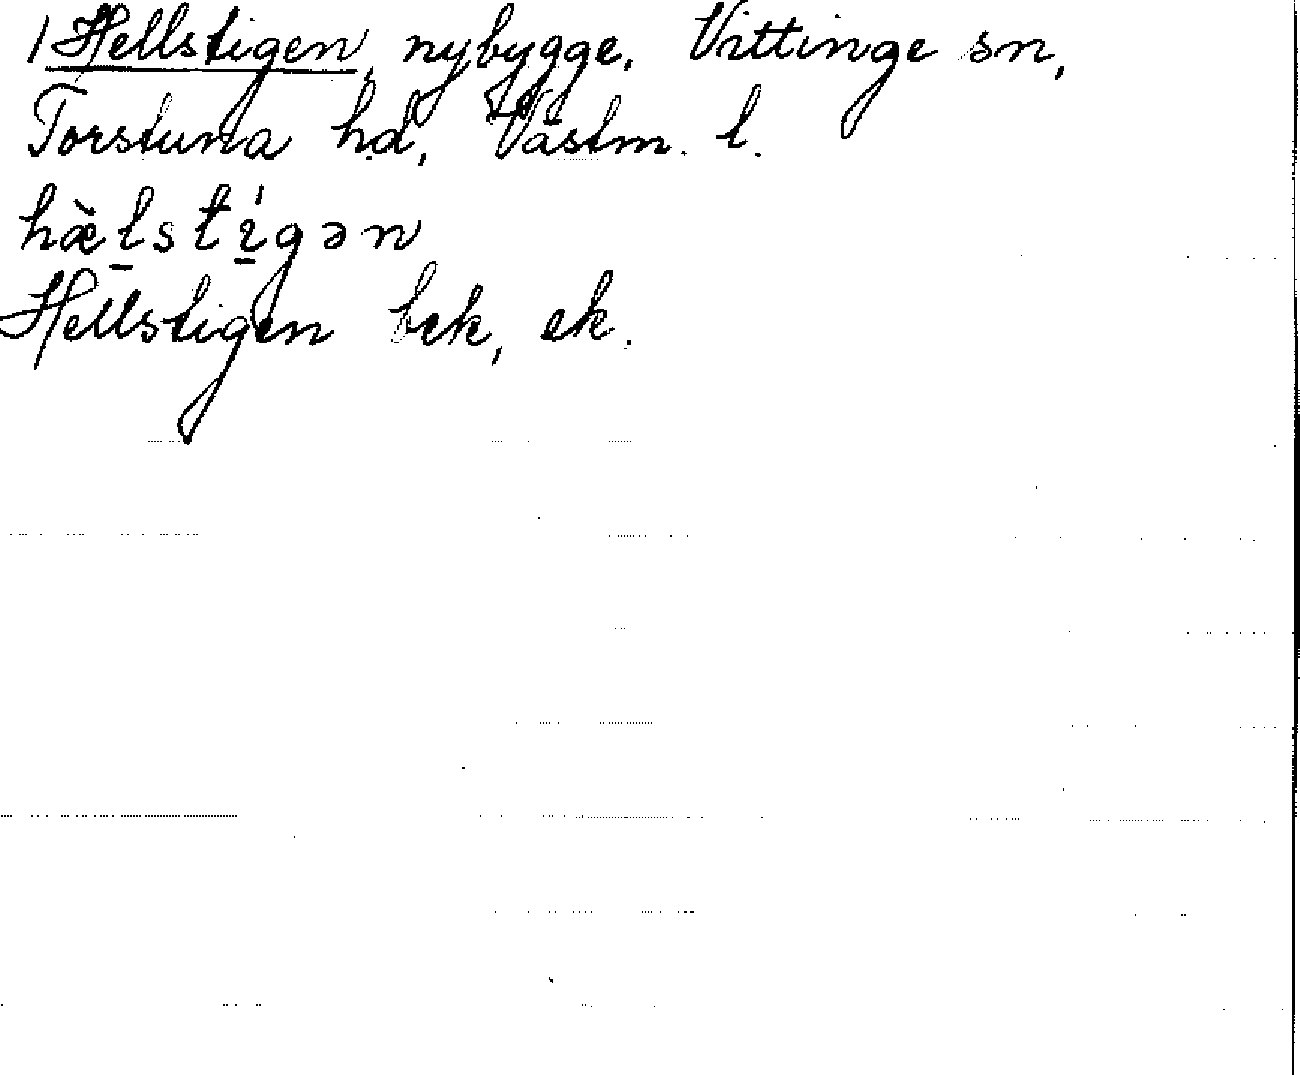 1 Hellstigen, nybygge, Vittinge sn,
Torstuna hd, Västm. l.
hæ̀l̠stí̠gən
Hellstigen bek, ek.